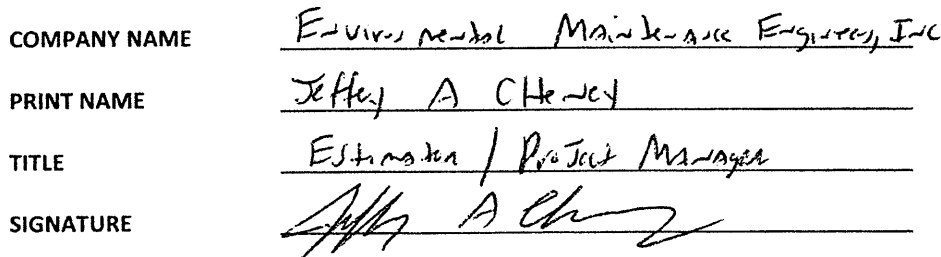 COMPANY NAME Environmental Maintenance Engineers, Inc
PRINT NAME Jeffery A Cheney
TITLE Estimator / Project Manager
SIGNATURE Jeffery A Cheney